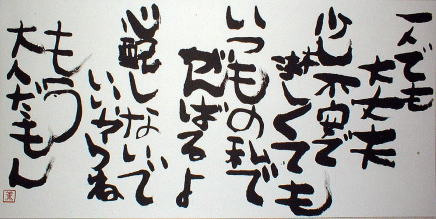 一人でも
大丈夫
少し不安で
淋しくても
いつもの私で
がんばるよ
心配しないで
いいからね
もう
大人だもん